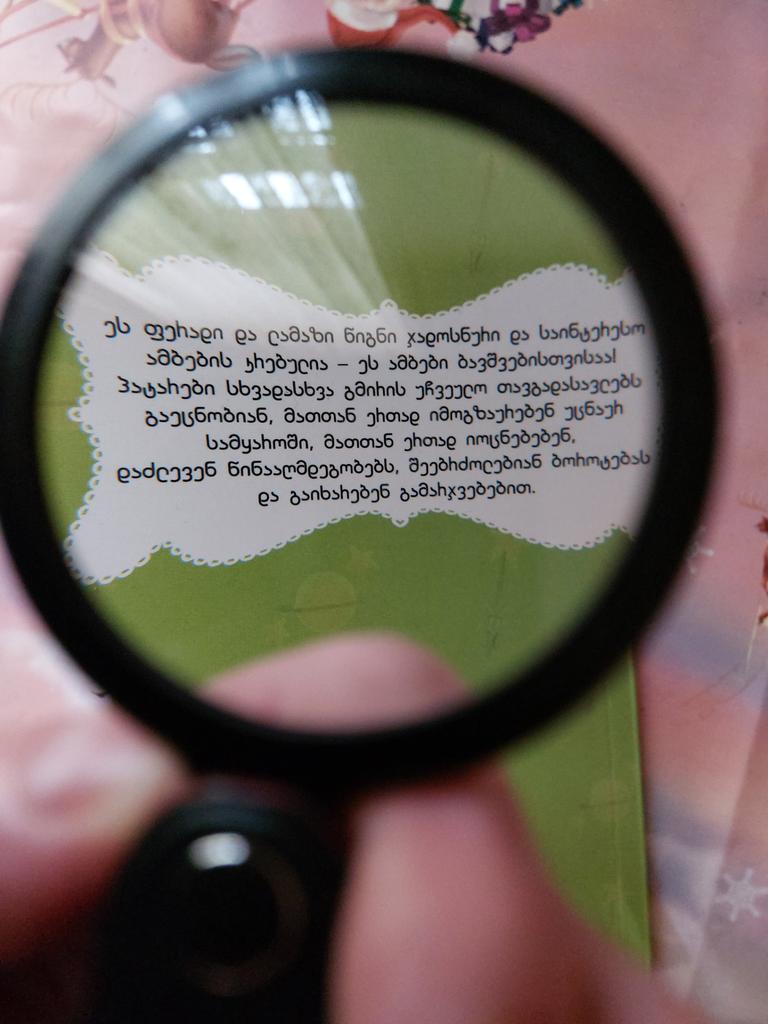 ეს ფერადი და ლამაზი წიგნი ჯადოსნური და საინტერესო
ამბების კრებულია – ეს ამბები ბავშვებისთვისაა!
პატარები სხვადასხვა გმირის უჩვეულო თავგადასავლებს
გაეცნობიან, მათთან ერთად იმოგზაურებენ უცნაურ
სამყაროში, მათთან ერთად იოცნებებენ,
დაძლევენ წინააღმდეგობებს, შეებრძოლებიან ბოროტებას
და გაიხარებენ გამარჯვებებით.